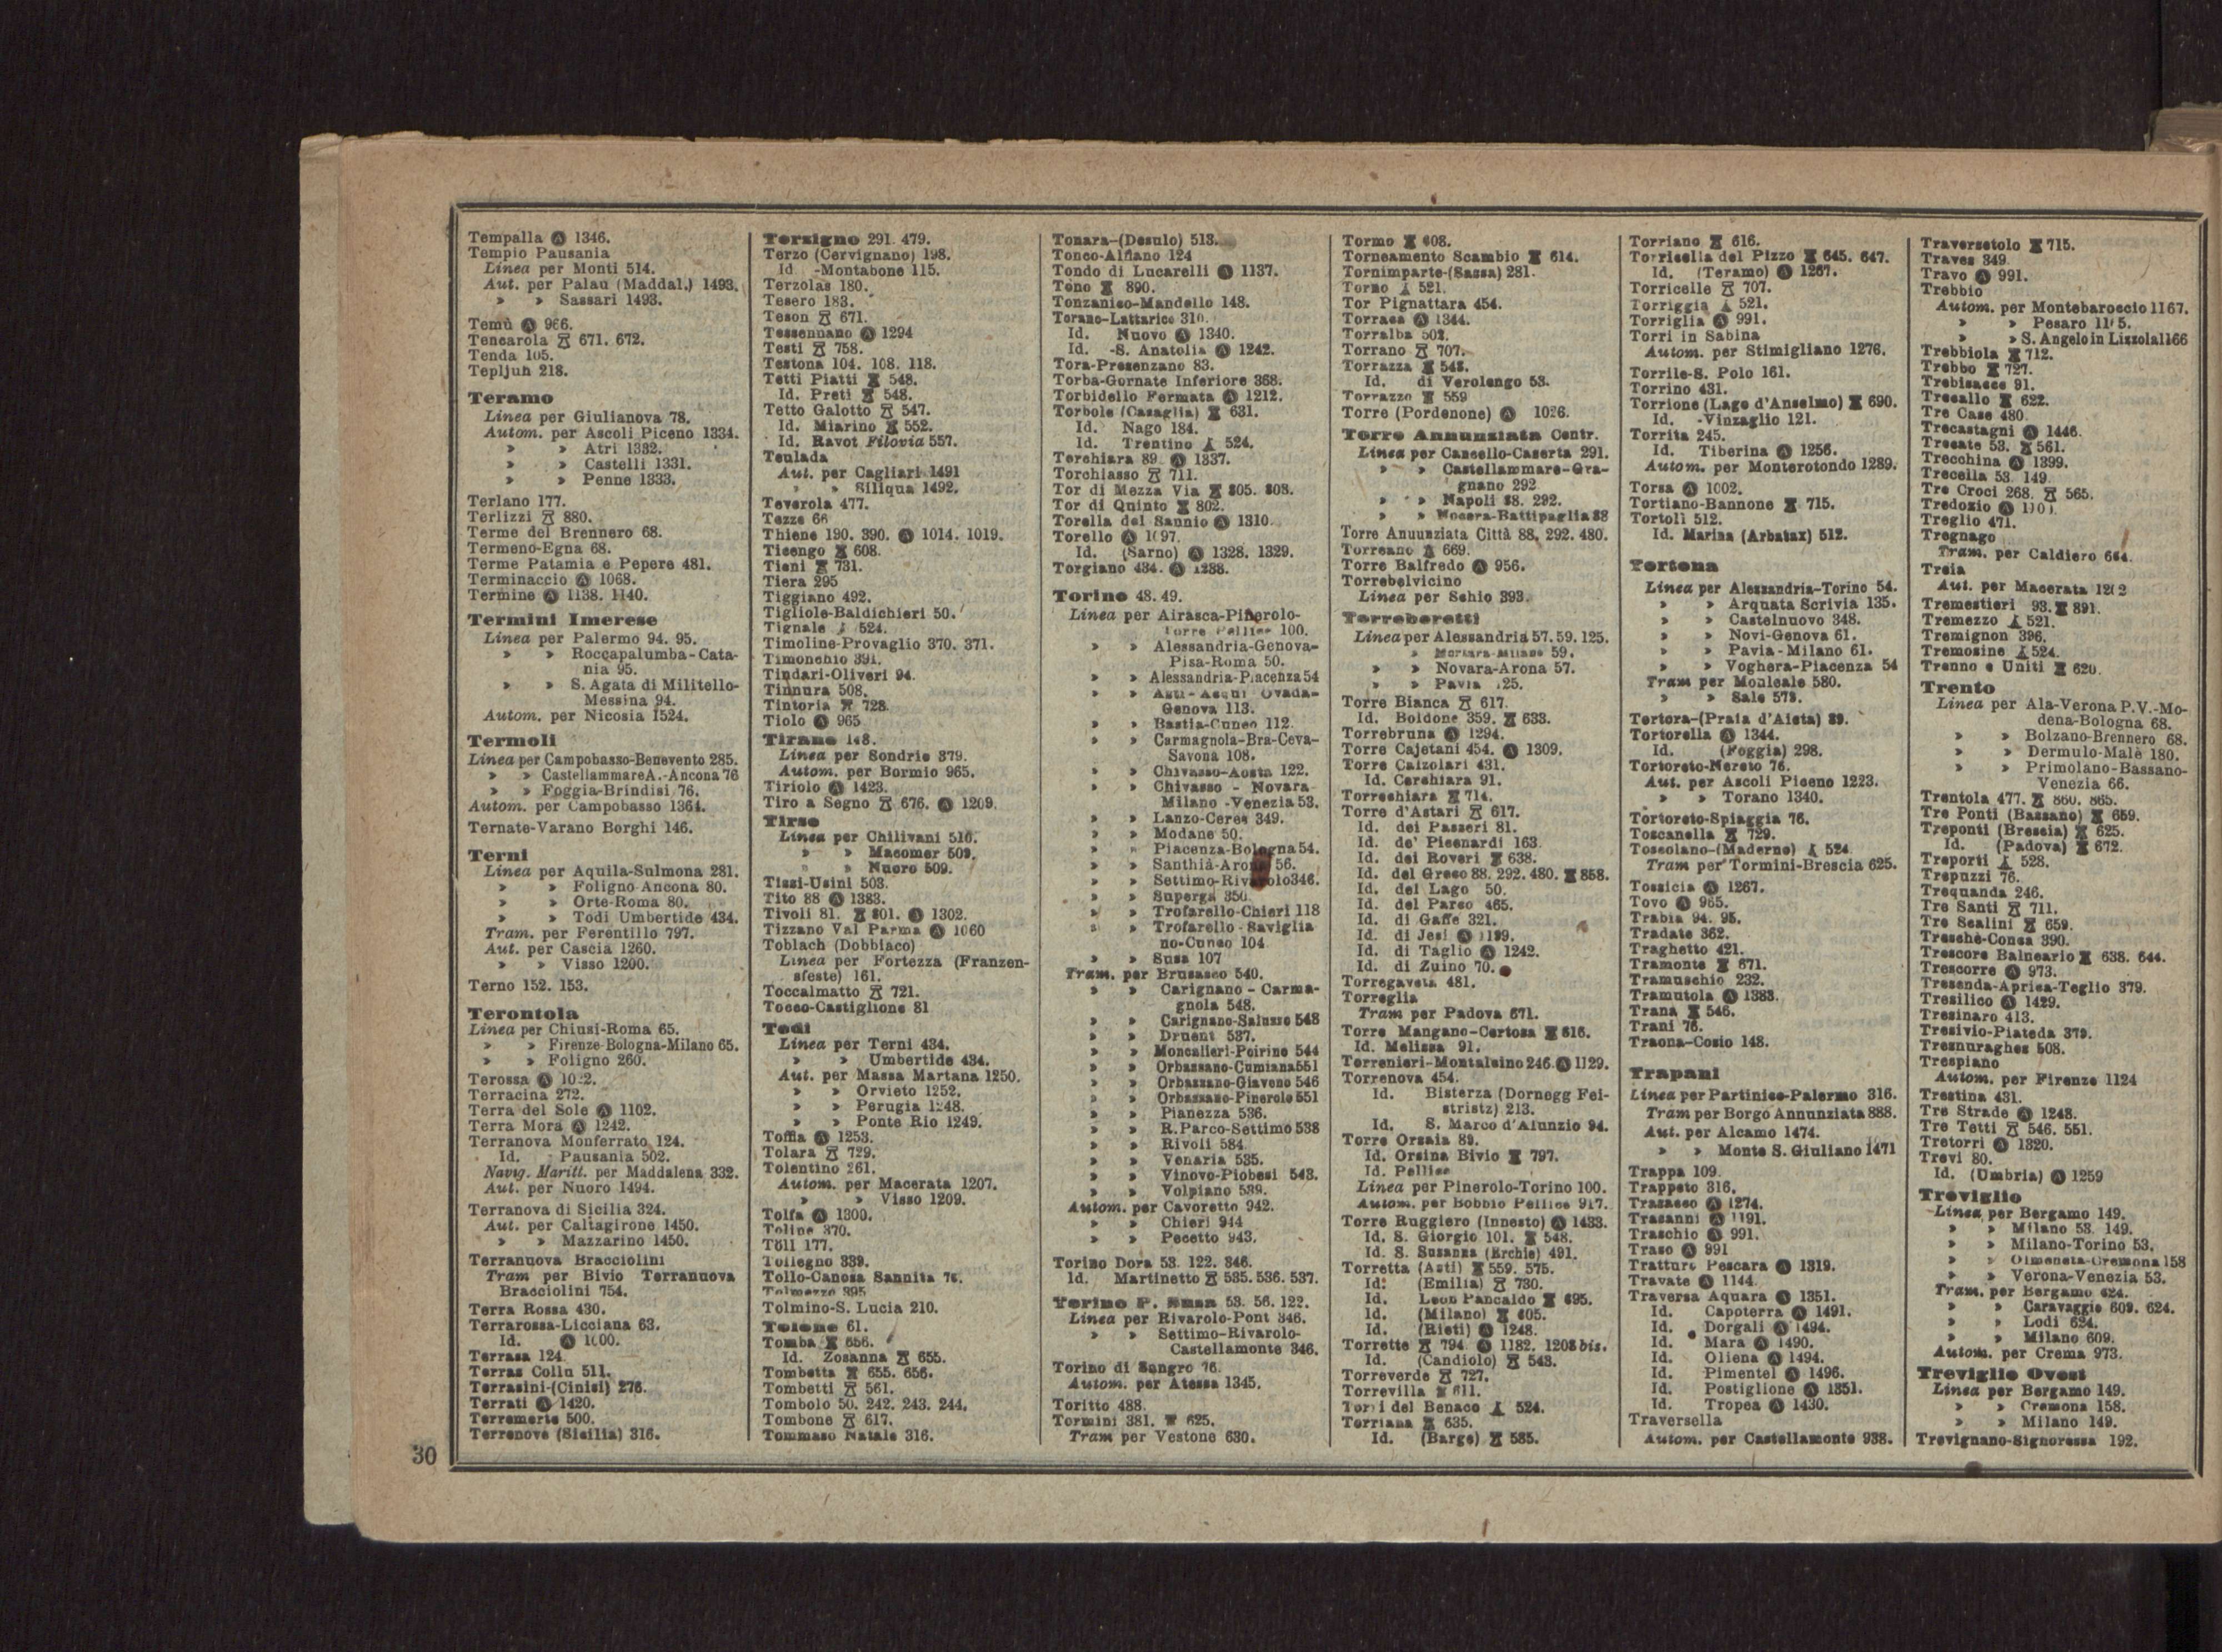 Tempalla Ⓐ 1346.
Tempio Pausania
Linea per Monti 514.
Aut. per Palau (Maddal.) 1493.
» » Sassari 1493.
Temù Ⓐ 966.
Tencarola 671. 672.
Tenda 105.
Tepljuh 218.
Teramo
Linea per Giulianova 78.
Autom. per Ascoli Piceno 1334.
» » Atri 1332.
» » Castelli 1331.
» » Penne 1333.
Terlano 177.
Terlizzi 880.
Terme del Brennero 68.
Termeno-Egna 68.
Terme Patamia e Pepere 481.
Terminaccio Ⓐ 1068.
Termine Ⓐ 1138. 1140.
Termini Imerese
Linea per Palermo 94. 95.
» » Roccapalumba-Cata-
nia 95.
» » S. Agata di Militello-
Messina 94.
Autom. per Nicosia 1524.
Termoli
Linea per Campobasso-Benevento 285.
» » Castellammare A.-Ancona 76
» » Foggia-Brindisi 76.
Autom. per Campobasso 1364.
Ternate-Varano Borghi 146.
Terni
Linea per Aquila-Sulmona 281.
» » Foligno Ancona 80.
» » Orte-Roma 80.
» » Todi Umbertide 434.
Tram. per Ferentillo 797.
Aut. per Cascia 1260.
» » Visso 1200.
Terno 152. 153.
Terontola
Linea per Chiusi-Roma 65.
» » Firenze-Bologna-Milano 65.
» » Foligno 260.
Terossa Ⓐ
Terracina 272.
Terra del Sole Ⓐ 1102.
Terra Mora Ⓐ 1242.
Terranova Monferrato 124.
Id. - Pausania 502.
Navig. Maritt. per Maddalena 332.
Aut. per Nuoro 1494.
Terranova di Sicilia 324.
Aut. per Caltagirone 1450.
» » Mazzarino 1450.
Terranuova Bracciolini
Tram per Bivio Terranuova
Bracciolini 754.
Terra Rossa 430.
Terrarossa-Licciana 63.
Id. Ⓐ 1000.
Terrasa 124.
Terras Collu 511.
Terrasini-(Cinisi) 276.
Terrati Ⓐ 1420.
Terremorte 500.
Terrenove (Sicilia) 316.
Terzigno 291. 479.
Terzo (Cervignano) 198.
Id -Montabone 115.
Terzolas 180.
Tesero 183.
Teson 671.
Tessennano Ⓐ 1294
Testi 758.
Testona 104. 108. 118.
Tetti Piatti 548.
Id. Preti 548.
Tetto Galotto 547.
Id. Miarino 552.
Id. Ravot Filovia 557.
Teulada
Aut. per Cagliari 1491
» » Siliqua 1492.
Teverola 477.
Tezze 66
Thiene 190. 390. Ⓐ 1014. 1019.
Ticengo 608.
Tieni 731.
Tiera 295
Tiggiano 492.
Tigliole-Baldichieri 50.
Tignale 524.
Timoline-Provaglio 370. 371.
Timonchio 391.
Tindari-Oliveri 94.
Tinnura 508.
Tintoria 728.
Tiolo Ⓐ 965
Tirano 148.
Linea per Sondrio 379.
Autom. per Bormio 965.
Tiriolo Ⓐ 1423.
Tiro a Segno 676. Ⓐ 1209.
Tirso
Linea per Chilivani 516.
» » Macomer 509.
» » Nuoro 509.
Tissi-Usini 503.
Tito 88 Ⓐ 1383.
Tivoli 81. 801. Ⓐ 1302.
Tizzano Val Parma Ⓐ 1060
Toblach (Dobbiaco)
Linea per Fortezza (Franzen-
sfeste) 161.
Toccalmatto 721.
Tocco-Castiglione 81
Todi
Linea per Terni 434.
» » Umbertide 434.
Aut. per Massa Martana 1250.
» » Orvieto 1252.
» » Perugia 1248.
» » Ponte Rio 1249.
Toffia Ⓐ 1253.
Tolara 729.
Tolentino 261.
Autom. per Macerata 1207.
» » Visso 1209.
Tolfa Ⓐ 1300.
Toline 370.
Töll 177.
Tollegno 339.
Tollo-Canosa Sannita 76.
Tolmezzo 395
Tolmino-S. Lucia 210.
Tolone 61.
Tomba 656.
Id. Zosanna 655.
Tombetta 655. 656.
Tombetti 561.
Tombolo 50. 242. 243. 244.
Tombone 617.
Tommaso Natale 316.
Tonara-(Desulo) 513.
Tonco-Alfiano 124
Tondo di Lucarelli Ⓐ 1137.
Tono 890.
Tonzanico-Mandello 148.
Torano-Lattarico 310.
Id. Nuovo Ⓐ 1340.
Id. -S. Anatolia Ⓐ 1242.
Tora-Presenzano 83.
Torba-Gornate Inferiore 368.
Torbidello Fermata Ⓐ 1212.
Torbole (Casaglia) 631.
Id. Nago 184.
Id. Trentino 524.
Torchiara 89. Ⓐ 1337.
Torchiasso 711.
Tor di Mezza Via 805. 808.
Tor di Quinto 802.
Torella del Sannio Ⓐ 1310.
Torello Ⓐ 1097.
Id. (Sarno) Ⓐ 1328. 1329.
Torgiano 434. Ⓐ 1288.
Torino 48. 49.
Linea per Airasca-Pinerolo-
Torre Pellice 100.
» » Alessandria-Genova-
Pisa-Roma 50.
» » Alessandria-Piacenza 54
» » Asti-Acqui Ovada-
Genova 113.
» » Bastia-Cuneo 112.
» » Carmagnola-Bra-Ceva-
Savona 108.
» » Chivasso-Aosta 122.
» » Chivasso - Novara
Milano -Venezia 53.
» » Lanzo-Ceres 349.
» » Modane 50.
» » Piacenza-Bologna 54.
» » Santhià-Arona 56.
» » Settimo-Rivarolo 346.
» » Superga 350.
» » Trofarello-Chieri 118
» » Trofarello-Saviglia
no-Cuneo 104
» » Susa 107
Tram. per Brusasco 540.
» » Carignano - Carma-
gnola 548.
» » Carignano-Saluzzo 548
» » Druent 537.
» » Moncalieri-Poirino 544
» » Orbassano-Cumiana 551
» » Orbassano-Giaveno 546
» » Orbassano-Pinerolo 551
» » Pianezza 536.
» » R. Parco-Settimo 538
» » Rivoli 584.
» » Venaria 535.
» » Vinovo-Piobesi 543.
» » Volpiano 539.
Autom. per Cavoretto 942.
» » Chieri 944
» » Pecetto 943.
Torino Dora 53. 122. 346.
Id. Martinetto 535. 536. 537.
Torino P. Susa 53. 56. 122.
Linea per Rivarolo-Pont 346.
» » Settimo-Rivarolo-
Castellamonte 346.
Torino di Sangro 76.
Autom. per Atessa 1345.
Toritto 488.
Tormini 381. 625.
Tram per Vestone 630.
Tormo 608.
Torneamento Scambio 614.
Tornimparte-(Sassa) 281.
Torno 521.
Tor Pignattara 454.
Torraca Ⓐ 1344.
Torralba 502.
Torrano 707.
Torrazza 548.
Id. di Verolengo 53.
Torrazzo 559
Torre (Pordenone) Ⓐ 1026.
Torre Annunziata Centr.
Linea per Cancello-Caserta 291.
» » Castellammare-Gra-
gnano 292
» » Napoli 88. 292.
» » Nocera-Battipaglia 88
Torre Annunziata Città 88. 292. 480.
Torreano 669.
Torre Balfredo Ⓐ 956.
Torrebelvicino
Linea per Schio 393.
Torreberetti
Linea per Alessandria 57. 59. 125.
» Mortara-Milano 59.
» » Novara-Arona 57.
» » Pavia 125.
Torre Bianca 617.
Id. Boldone 359. 633.
Torrebruna Ⓐ 1294.
Torre Cajetani 454. Ⓐ 1309.
Torre Calzolari 431.
Id. Cerchiara 91.
Torrechiara 714.
Torre d'Astari 617.
Id. dei Passeri 81.
Id. de' Picenardi 163.
Id. dei Roveri 638.
Id. del Greco 88. 292. 480. 858.
Id. del Lago 50.
Id. del Parco 465.
Id. di Gaffe 321.
Id. di Jesi Ⓐ 1199.
Id. di Taglio Ⓐ 1242.
Id. di Zuino 70.
Torregaveta 481.
Torreglia
Tram per Padova 671.
Torre Mangano-Certosa 616.
Id. Melissa 91.
Torrenieri-Montalcino 246. Ⓐ 1129.
Torrenova 454.
Id. Bisterza (Dornegg Fei-
stristz) 213.
Id. S. Marco d'Alunzio 94.
Torre Orsaia 89.
Id. Orsina Bivio 797.
Id. Pellice
Linea per Pinerolo-Torino 100.
Autom. per Bobbio Pellice 917.
Torre Ruggiero (Innesto) Ⓐ 1433.
Id. S. Giorgio 101. 548.
Id. S. Susanna (Erchie) 491.
Torretta (Asti) 559. 575.
Id. (Emilia) 730.
Id. Leon Pancaldo 695.
Id. (Milano) 605.
Id. (Rieti) Ⓐ 1248.
Torrette 794. Ⓐ 1182. 1208 bis.
Id. (Candiolo) 543.
Torreverde 727.
Torrevilla 611.
Torri del Benaco 524.
Torriana 635.
Id. (Barge) 585.
Torriano 616.
Torricella del Pizzo 645. 647.
Id. (Teramo) Ⓐ 1267.
Torricelle 707.
Torriggia 521.
Torriglia Ⓐ 991.
Torri in Sabina
Autom. per Stimigliano 1276.
Torrile-S. Polo 161.
Torrino 431.
Torrione (Lago d'Anselmo) 690.
Id. -Vinzaglio 121.
Torrita 245.
Id. Tiberina Ⓐ 1256.
Autom. per Monterotondo 1289.
Torsa Ⓐ 1002.
Tortiano-Bannone 715.
Tortolì 512.
Id. Marina (Arbatax) 512.
Tortona
Linea per Alessandria-Torino 54.
» » Arquata Scrivia 135.
» » Castelnuovo 348.
» » Novi-Genova 61.
» » Pavia-Milano 61.
» » Voghera-Piacenza 54
Tram per Monleale 580.
» » Sale 579.
Tortora-(Praia d'Aieta) 89.
Tortorella Ⓐ 1344.
Id. (Foggia) 298.
Tortoreto-Nereto 76.
Aut. per Ascoli Piceno 1223.
» » Torano 1340.
Tortoreto-Spiaggia 76.
Toscanella 729.
Toscolano-(Maderno) 524
Tram per Tormini-Brescia 625.
Tossicia Ⓐ 1267.
Tovo Ⓐ 965.
Trabia 94. 95.
Tradate 362.
Traghetto 421.
Tramonte 671.
Tramuschio 232.
Tramutola Ⓐ 1383.
Trana 546.
Trani 76.
Traona-Cosio 148.
Trapani
Linea per Partinico-Palermo 316.
Tram per Borgo Annunziata 888.
Aut. per Alcamo 1474.
» » Monte S. Giuliano 1471
Trappa 109.
Trappeto 316.
Trasacco Ⓐ 1274.
Trasanni Ⓐ 1191.
Traschio Ⓐ 991.
Traso Ⓐ 991
Tratturo Pescara Ⓐ 1319.
Travate Ⓐ 1144.
Traversa Aquara Ⓐ 1351.
Id. Capoterra Ⓐ 1491.
Id. Dorgali Ⓐ 1494.
Id. Mara Ⓐ 1490.
Id. Oliena Ⓐ 1494.
Id. Pimentel Ⓐ 1496.
Id. Postiglione Ⓐ 1351.
Id. Tropea Ⓐ 1430.
Traversella
Autom. per Castellamonte 938.
Traversetolo 715.
Traves 349.
Travo Ⓐ 991.
Trebbio
Autom. per Montebaroccio 1167.
» » Pesaro
» » S. Angelo in Lizzola 1166
Trebbiola 712.
Trebbo 727.
Trebisacce 91.
Trecallo 622.
Tre Case 480.
Trecastagni Ⓐ 1446.
Trecate 53. 561.
Trecchina Ⓐ 1399.
Trecella 53. 149.
Tre Croci 268. 565.
Tredozio Ⓐ
Treglio 471.
Tregnago
Tram. per Caldiero 664.
Treia
Aut. per Macerata 1202
Tremestieri 93. 891.
Tremezzo 521.
Tremignon 396.
Tremosine 524.
Trenno e Uniti 620.
Trento
Linea per Ala-Verona P.V.-Mo-
dena-Bologna 68.
» » Bolzano-Brennero 68.
» » Dermulo-Malè 180.
» » Primolano-Bassano-
Venezia 66.
Trentola 477. 860. 865.
Tre Ponti (Bassano) 659.
Treponti (Brescia) 625.
Id. (Padova) 672.
Treporti 528.
Trepuzzi 76.
Trequanda 246.
Tre Santi 711.
Tre Scalini 659.
Treschè-Conca 390.
Trescore Balneario 638. 644.
Trescorre Ⓐ 973.
Tresenda-Aprica-Teglio 379.
Tresilico Ⓐ 1429.
Tresinaro 413.
Tresivio-Piateda 379.
Tresnuraghes 508.
Trespiano
Autom. per Firenze 1124
Trestina 431.
Tre Strade Ⓐ 1248.
Tre Tetti 546. 551.
Tretorri Ⓐ 1320.
Trevi 80.
Id. (Umbria) Ⓐ 1259
Treviglio
Linea per Bergamo 149.
» » Milano 53. 149.
» » Milano-Torino 53.
» » Olmeneta-Cremona 158
» » Verona-Venezia 53.
Tram. per Bergamo 624.
» » Caravaggio 609. 624.
» » Lodi 624.
» » Milano 609.
Autom. per Crema 973.
Treviglio Ovest
Linea per Bergamo 149.
» » Cremona 158.
» » Milano 149.
Trevignano-Signoressa 192.
30